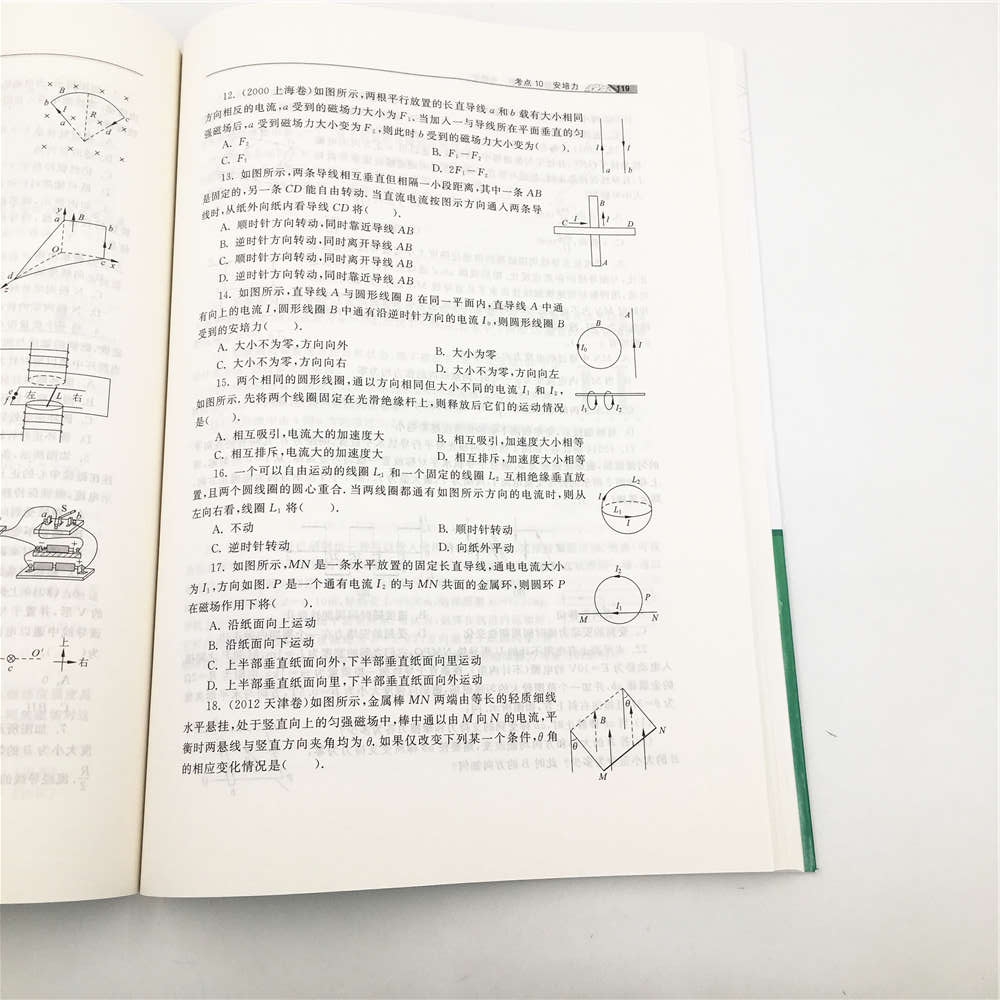 考点10 安培力 119
12. (2000上海卷)如图所示,两根平行放置的长直导线a和b载有大小相同
方向相反的电流,a受到的磁场力大小为F₁,当加入一与导线所在平面垂直的匀
强磁场后,a受到磁场力大小变为F₂,则此时b受到的磁场力大小变为( ).
A. F₂ B. F₁－F₂
C. F₁ D. 2F₁－F₂
13. 如图所示,两条导线相互垂直但相隔一小段距离,其中一条AB
是固定的,另一条CD能自由转动.当直流电流按图示方向通入两条导
线时,从纸外向纸内看导线CD将( ).
A. 顺时针方向转动,同时靠近导线AB
B. 逆时针方向转动,同时离开导线AB
C. 顺时针方向转动,同时离开导线AB
D. 逆时针方向转动,同时靠近导线AB
14. 如图所示,直导线A与圆形线圈B在同一平面内,直导线A中通
有向上的电流I,圆形线圈B中通有沿逆时针方向的电流I₀,则圆形线圈B
受到的安培力( ).
A. 大小不为零,方向向外 B. 大小为零
C. 大小不为零,方向向右 D. 大小不为零,方向向左
15. 两个相同的圆形线圈,通以方向相同但大小不同的电流I₁和I₂,
如图所示.先将两个线圈固定在光滑绝缘杆上,则释放后它们的运动情况
是( ).
A. 相互吸引,电流大的加速度大 B. 相互吸引,加速度大小相等
C. 相互排斥,电流大的加速度大 D. 相互排斥,加速度大小相等
16. 一个可以自由运动的线圈L₁和一个固定的线圈L₂互相绝缘垂直放
置,且两个圆线圈的圆心重合.当两线圈都通有如图所示方向的电流时,则从
左向右看,线圈L₁将( ).
A. 不动 B. 顺时针转动
C. 逆时针转动 D. 向纸外平动
17. 如图所示,MN是一条水平放置的固定长直导线,通电电流大小
为I₁,方向如图.P是一个通有电流I₂的与MN共面的金属环,则圆环P
在磁场作用下将( ).
A. 沿纸面向上运动
B. 沿纸面向下运动
C. 上半部垂直纸面向外,下半部垂直纸面向里运动
D. 上半部垂直纸面向里,下半部垂直纸面向外运动
18. (2012天津卷)如图所示,金属棒MN两端由等长的轻质细线
水平悬挂,处于竖直向上的匀强磁场中,棒中通以由M向N的电流,平
衡时两悬线与竖直方向夹角均为θ.如果仅改变下列某一个条件,θ角
的相应变化情况是( ).
I I
a b
B
C I I D
A
A
B
I₀ I
I₁ I₂
L₂
I
L₁
I
I₂
P
I₁
M N
θ
B
N
θ
M
B
b c
I R
a d
y
a B b
O I
c x
d
z
左 L 右
a S b
上
O′ 右
c